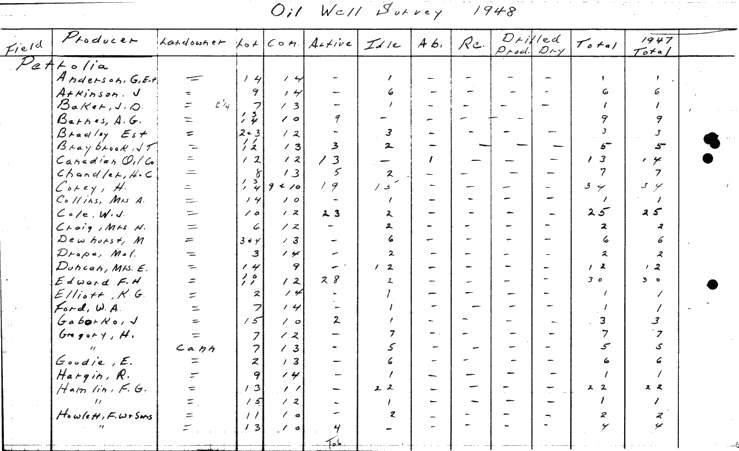 Oil Well Survey 1948
Field Producer Landowner Lot Con. Active Idle Ab. Re. Drilled Prod. Dry Total 1947 Total
Petrolia
Anderson, G. Est = 14 14 — 1 — — — — 1 1
Atkinson, J = 9 14 — 6 — — — — 6 6
Baker, J. D. = E½ 7 13 — 1 — — — — 1 1
Barnes, A. G. = 13 14 10 9 — — — — — 9 9
Bradley Est = 2+3 12 — 3 — — — — 3 3
Braybrook, J T = 11 12 13 3 2 — — — — 5 5
Canadian Oil Co = 12 12 13 — 1 — — — 13 14
Chandler, H. C = 8 13 5 2 — — — — 7 7
Corey, H. = 13 14 9+10 19 15 — — — — 34 34
Collins, Mrs A. = 14 10 — 1 — — — — 1 1
Cole, W. J. = 10 12 23 2 — — — — 25 25
Craig, Mrs N. = 6 12 — 2 — — — — 2 2
Dewhurst, M = 3+4 13 — 6 — — — — 6 6
Drope, Mal. = 3 14 — 2 — — — — 2 2
Duncan, Mrs. E. = 14 9 — 12 — — — — 12 12
Edward F. H = 10 11 12 28 2 — — — — 30 30
Elliott, K G. = 2 14 — 1 — — — — 1 1
Ford, W. A. = 7 14 — 1 — — — — 1 1
Gaborko, J = 15 10 2 1 — — — — 3 3
Gregory, H. = 7 12 — 7 — — — — 7 7
" Cann 7 13 — 5 — — — — 5 5
Goudie, E. = 2 13 — 6 — — — — 6 6
Hargin, R. = 9 14 — 1 — — — — 1 1
Hamlin, F. G. = 13 11 — 22 — — — — 22 22
" = 15 12 — 1 — — — — 1 1
Howlett, F. W + Sons = 11 10 — 2 — — — — 2 2
" = 13 10 4 — — — — — 4 4